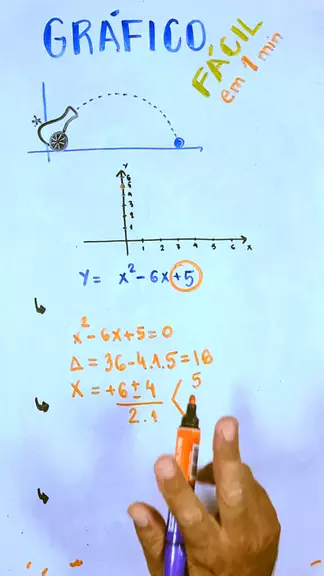 GRÁFICO
FÁCIL
em 1 min
Y
6
5
4
3
2
1
1 2 3 4 5 6 X
Y = x² - 6x + 5
x² - 6x + 5 = 0
Δ = 36 - 4.1.5 = 16
X = +6 ± 4 5
2.1